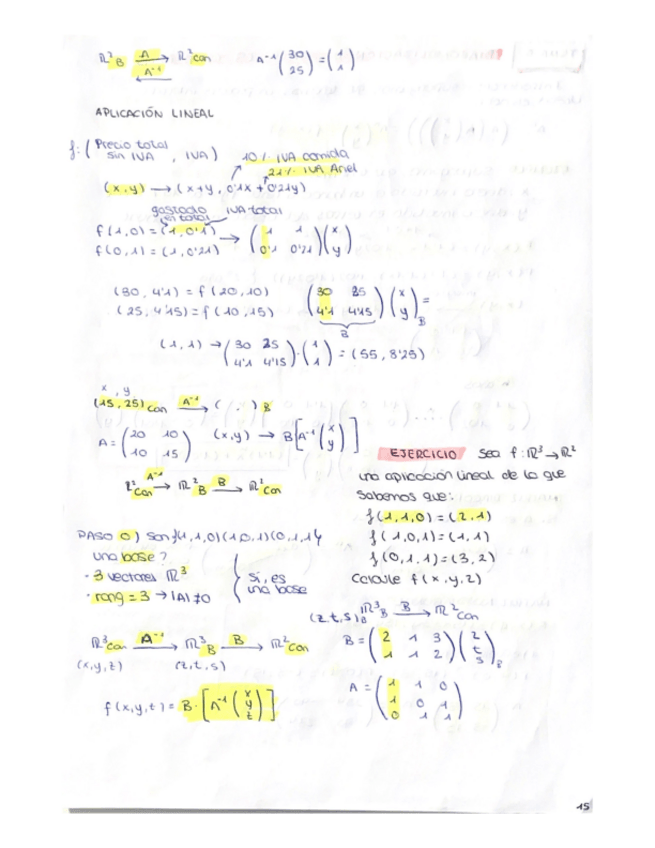 ℝ²_B —A→ ℝ²con   A⁻¹(30 25) = (1 1)
←A⁻¹—
APLICACIÓN LINEAL
f: (Precio total sin IVA, IVA)   10% IVA comida
21% IVA Ariel
(x,y) → (x+y, 0'1x + 0'21y)
gastado sin total   IVA total
f(1,0) = (1,0'1) → (1 1 / 0'1 0'21)(x y)
f(0,1) = (1,0'21)
(30, 4'1) = f(20,10)   (30 25 / 4'1 4'15)(x y)_B =
(25, 4'15) = f(10,15)   B
(1,1) → (30 25 / 4'1 4'15)·(1 1) = (55, 8'25)
x, y
(15,25)con —A⁻¹→ ( . )B
A = (20 10 / 10 15)   (x,y) → B[A⁻¹(x y)]
ℝ²con —A⁻¹→ ℝ²_B —B→ ℝ²con
EJERCICIO Sea f: ℝ³→ℝ²
una aplicación lineal de la que
sabemos que:
f(1,1,0) = (2,1)
f(1,0,1) = (1,1)
f(0,1,1) = (3,2)
Calcule f(x,y,z)
PASO 0) Son {(1,1,0)(1,0,1)(0,1,1)}
una base?
- 3 vectores ℝ³
- rang = 3 → |A| ≠ 0
Sí, es
una base
ℝ³con —A⁻¹→ ℝ³_B —B→ ℝ²con
(x,y,z)   (z,t,s)
f(x,y,z) = B·[A⁻¹(x y z)]
(z,t,s)_B ℝ³_B —B→ ℝ²con
B = (2 1 3 / 1 1 2)(z t s)_B
A = (1 1 0 / 1 0 1 / 0 1 1)
15